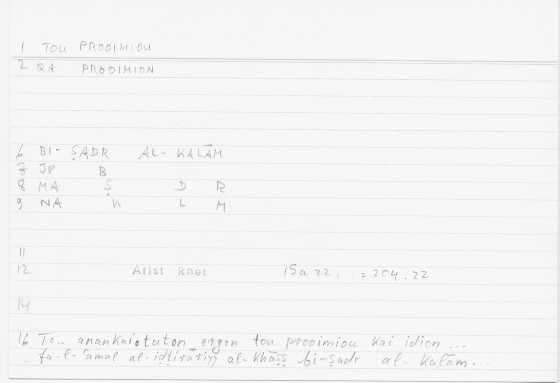 1 TOU PROOIMIOU
2 QA PROOIMION
6 BI-ṢADR AL-KALĀM
7 JP B
8 MA Ṣ D R
9 NA K L M
11
12 Arist Rhet 15a22... = 204.22
14
16 To.. anankaiotaton ergon tou prooimiou kai idion ...
.. fa-l-ʿamal al-iḍṭirāriyy al-khāṣṣ bi-ṣadr al-kalām...